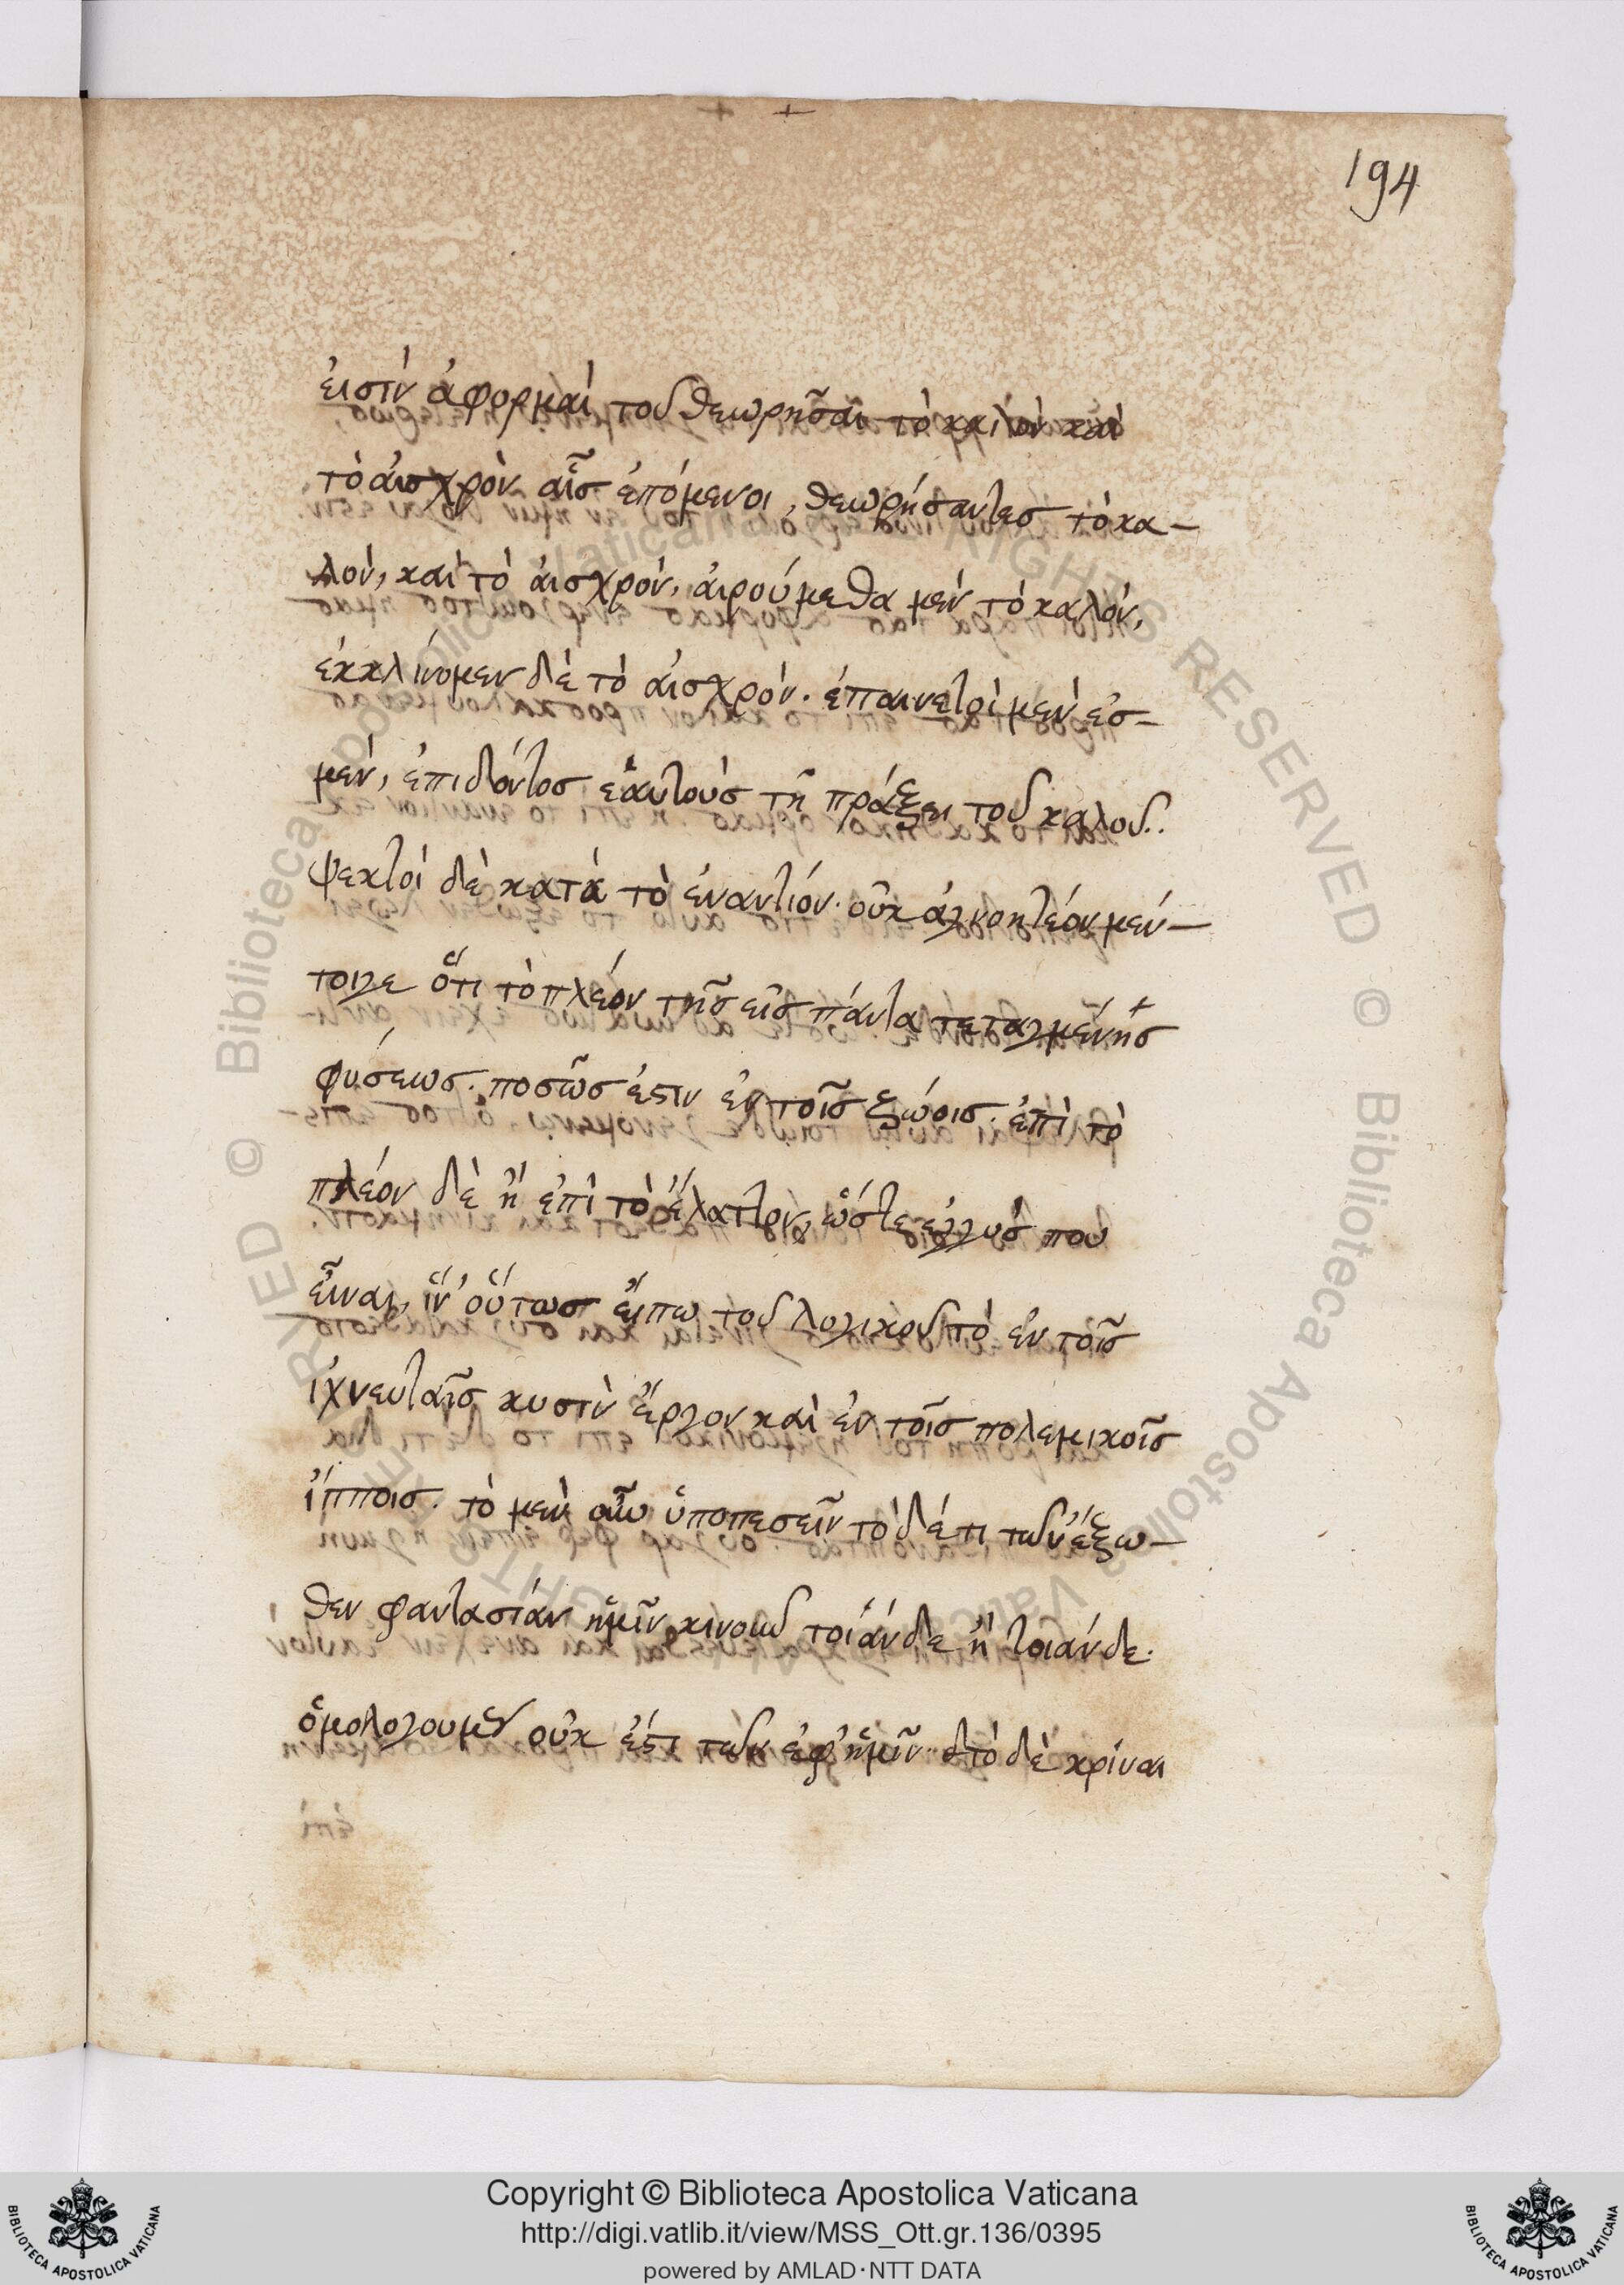 194
εἰσὶν ἀφορμαὶ τοῦ θεωρῆσαι τὸ καλὸν καὶ
τὸ αἰσχρὸν αἷς ἑπόμενοι, θεωρήσαντες τὸ κα-
λὸν, καὶ τὸ αἰσχρὸν, αἱρούμεθα μὲν τὸ καλὸν,
ἐκκλίνομεν δὲ τὸ αἰσχρόν. ἐπαινετοὶ μὲν ἐσ-
μὲν, ἐπιδόντος ἑαυτοὺς τῇ πράξει τοῦ καλοῦ.
ψεκτοὶ δὲ κατὰ τὸ ἐναντίον. οὐκ ἀγνοητέον μέν-
τοιγε ὅτι τὸ πλέον τῆς εἰς πάντα τεταγμένης
φύσεως. ποσῶς ἐστιν ἐν τοῖς ζώοις. ἐπὶ τὸ
πλέον δὲ ἢ ἐπὶ τὸ ἔλαττον, ὥστε ἐγγύς που
εἶναι, ἵν' οὕτως εἴπω τοῦ λογικοῦ τὸ ἐν τοῖς
ἰχνευταῖς κυσὶν ἔργον καὶ ἐν τοῖς πολεμικοῖς
ἵπποις. τὸ μὲν οὖν ὑποπεσεῖν τὸ δέ τι τῶν ἔξω-
θεν φαντασίαν ἡμῖν κινοῦν τοιάνδε ἢ τοιάνδε.
ὁμολογουμεν οὐκ ἔστι τῶν ἐφ' ἡμῖν. τὸ δὲ κρίναι
Copyright © Biblioteca Apostolica Vaticana
http://digi.vatlib.it/view/MSS_Ott.gr.136/0395
powered by AMLAD·NTT DATA